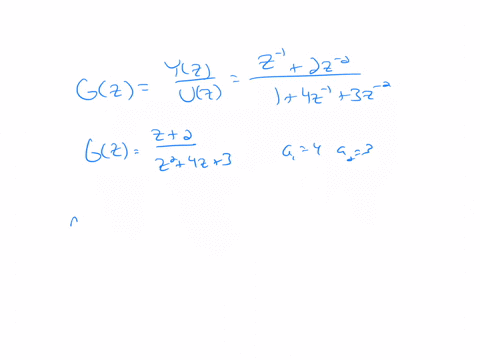 G(z) = Y(z)/U(z) = (z⁻¹ + 2z⁻²)/(1 + 4z⁻¹ + 3z⁻²)
G(z) = (z + 2)/(z² + 4z + 3) a₁ = 4 a₂ = 3